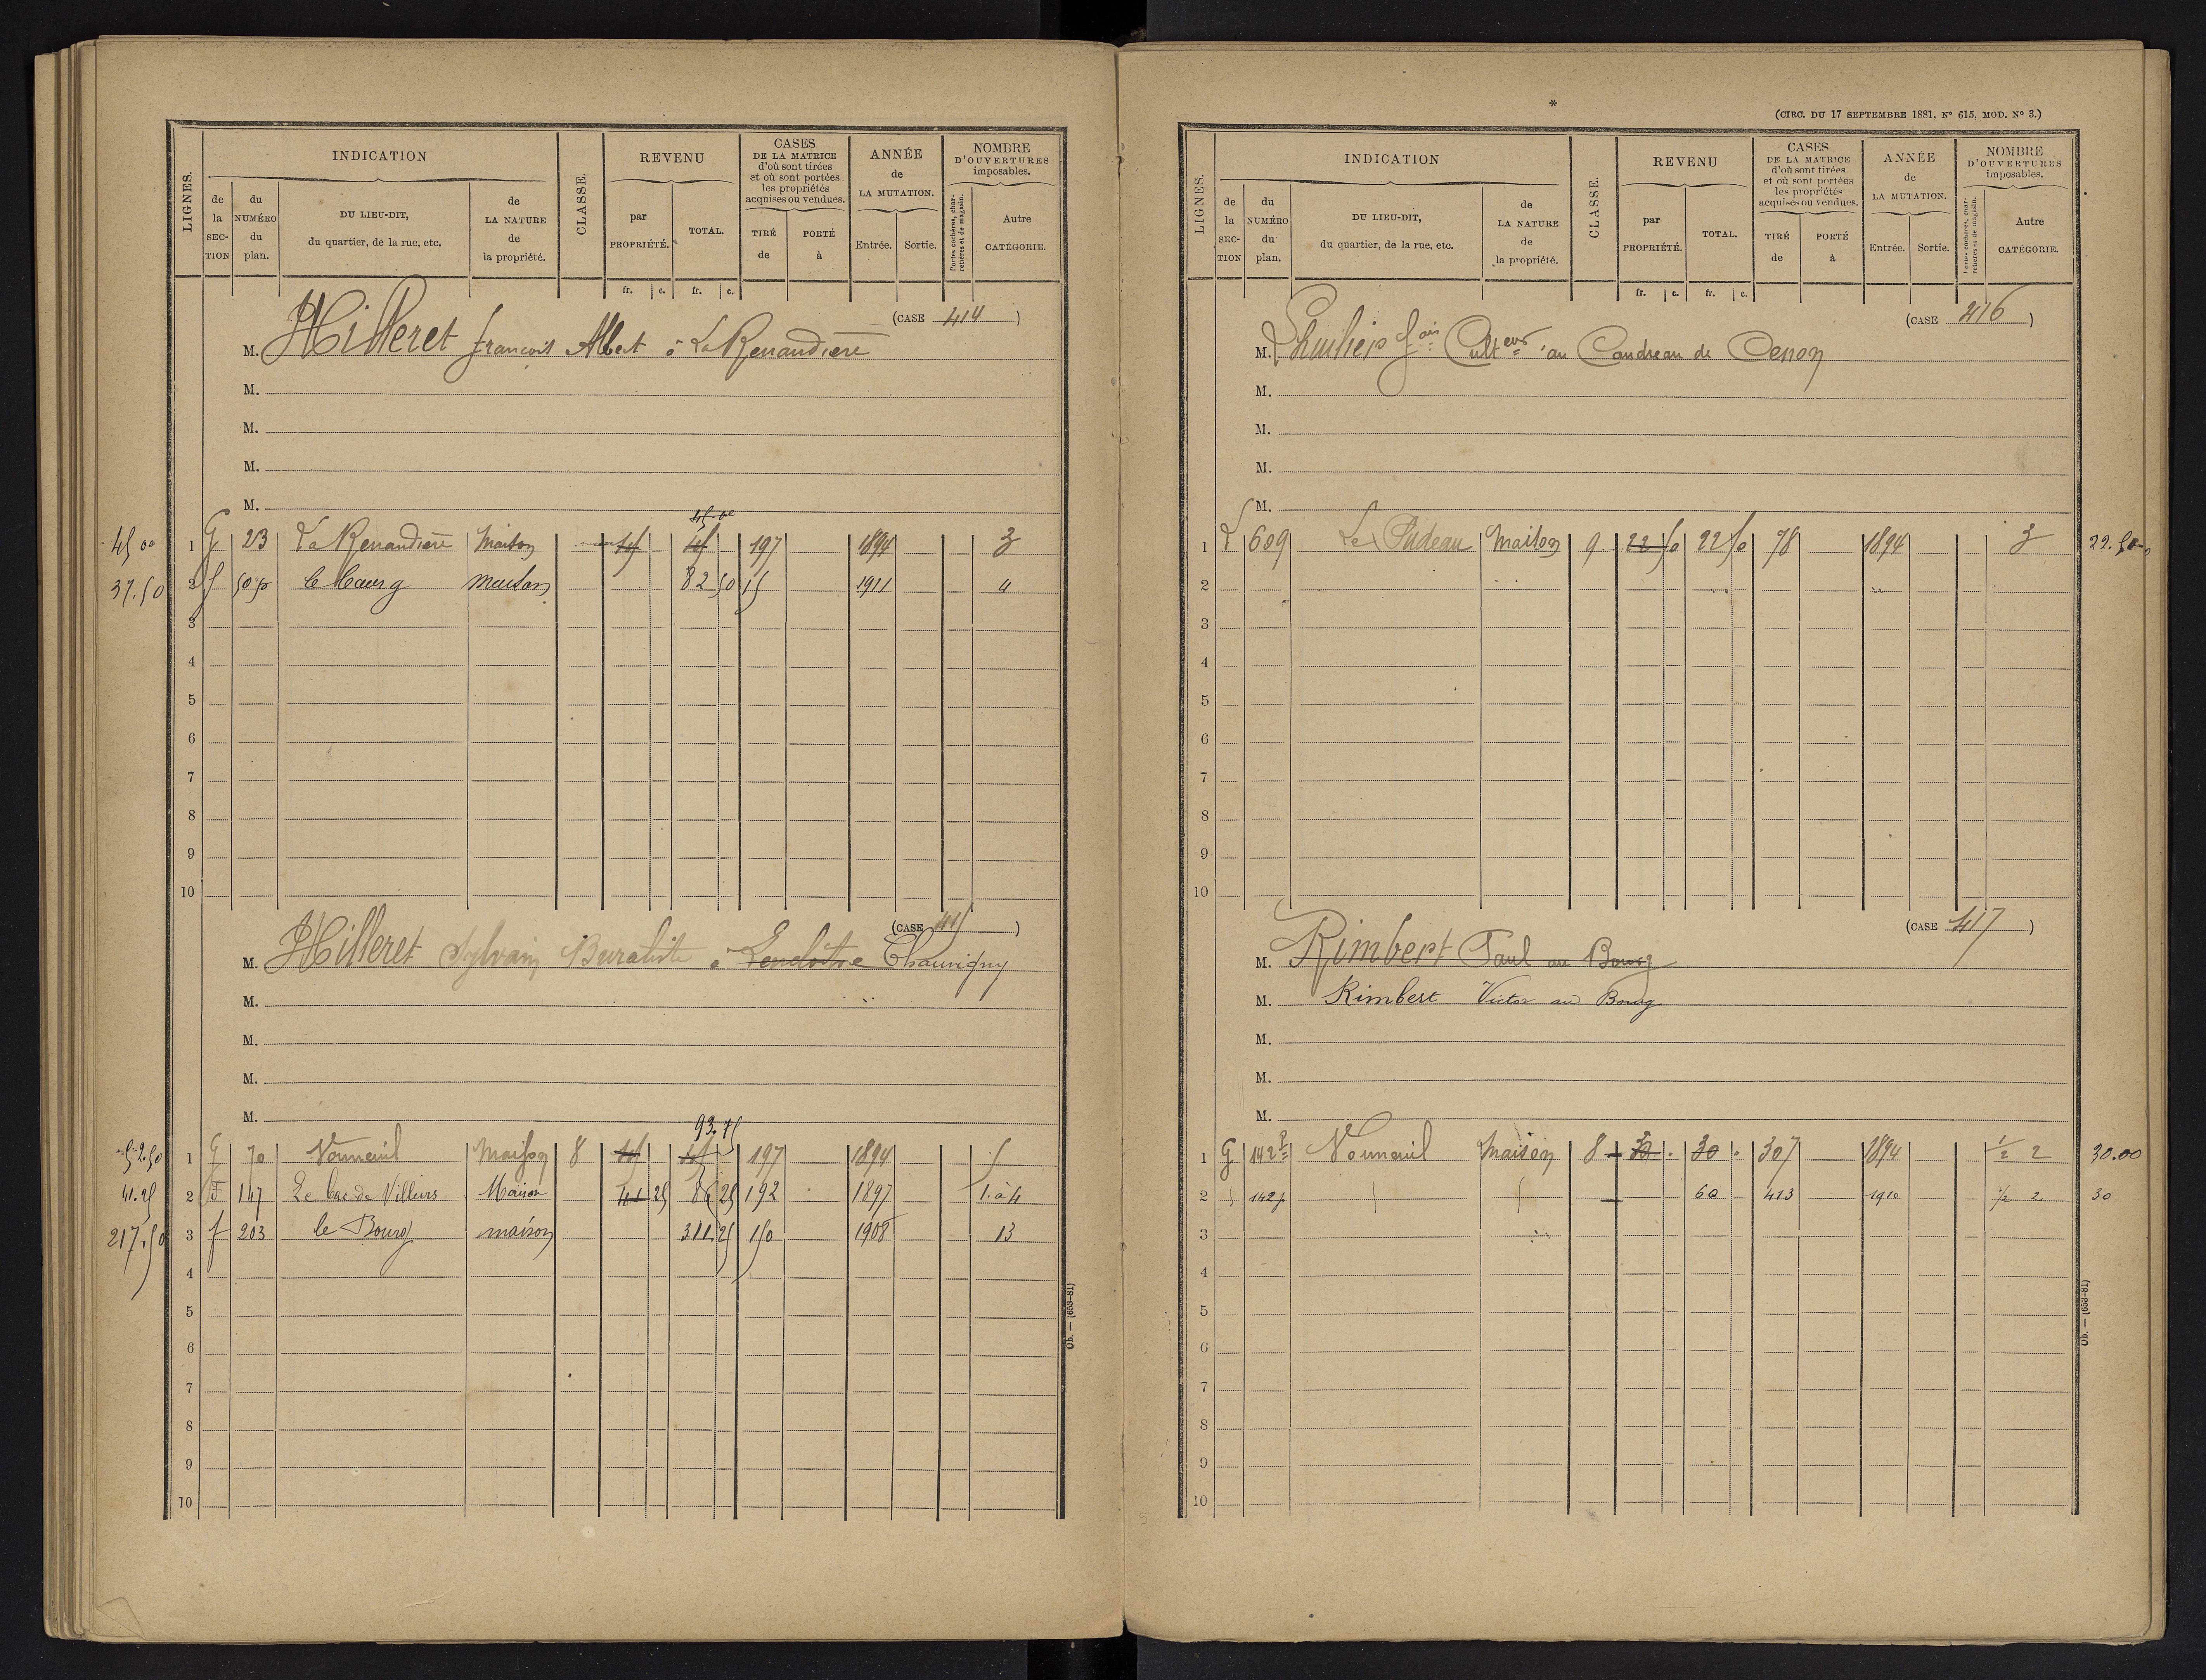 LIGNES.
INDICATION
de la SECTION
du NUMÉRO du plan.
DU LIEU-DIT, du quartier, de la rue, etc.
de LA NATURE de la propriété.
CLASSE.
REVENU
par PROPRIÉTÉ.
TOTAL.
CASES DE LA MATRICE d'où sont tirées et où sont portées les propriétés acquises ou vendues.
TIRÉ de
PORTÉ à
ANNÉE de LA MUTATION.
Entrée.
Sortie.
NOMBRE D'OUVERTURES imposables.
Portes cochères, charretières et de magasin.
Autre CATÉGORIE.
fr. c. fr. c.
(CASE 414)
M. Hilleret françois Albert à La Renaudière
M.
M.
M.
M.
45.00
45 00 1 G 213 La Renaudière Maison 45 45 197 1894 3
37.50 2 f 50p le bourg maison 82 50 15 1911 4
3
4
5
6
7
8
9
10
(CASE 415)
M. Hilleret Sylvain Buraliste à Lencloître Chauvigny
M.
M.
M.
M.
93.75
52.50 1 G 70 Vouneuil Maison 8 45 45 197 1894 5
41.25 2 F 147 Le bac de Villiers Maison 41 25 86 25 192 1897 1. à 4
217.50 3 f 203 le Bourg maison 311.25 150 1908 13
4
5
6
7
8
9
10
Ob. — (653-81)
*
(CIRC. DU 17 SEPTEMBRE 1881, N° 615, MOD. N° 3.)
LIGNES.
INDICATION
de la SECTION
du NUMÉRO du plan.
DU LIEU-DIT, du quartier, de la rue, etc.
de LA NATURE de la propriété.
CLASSE.
REVENU
par PROPRIÉTÉ.
TOTAL.
CASES DE LA MATRICE d'où sont tirées et où sont portées les propriétés acquises ou vendues.
TIRÉ de
PORTÉ à
ANNÉE de LA MUTATION.
Entrée.
Sortie.
NOMBRE D'OUVERTURES imposables.
Portes cochères, charretières et de magasin.
Autre CATÉGORIE.
fr. c. fr. c.
(CASE 416)
M. Lhuilier fois Culteur au Caudreau de Cenon
M.
M.
M.
M.
1 L 609 Les Pideau Maison 9 22 50 22 50 78 1894 3 22.50
2
3
4
5
6
7
8
9
10
(CASE 417)
M. Rimbert Paul au Bourg
M. Rimbert Victor au Bourg
M.
M.
M.
1 G 142p Vouneuil Maison 8 30 . 30 . 307 1894 1/2 2 30.00
2 142p 60 413 1910 1/2 2 30
3
4
5
6
7
8
9
10
Ob. — (653-81)